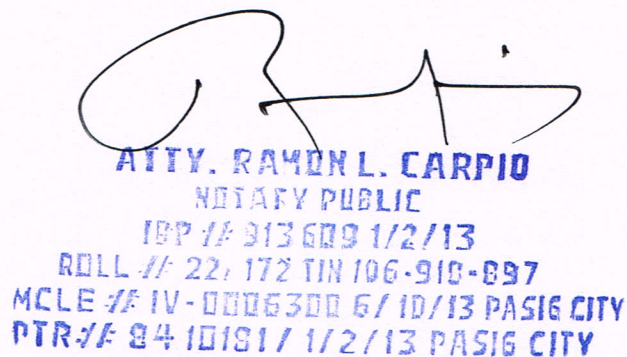 ATTY. RAMON L. CARPIO
NOTARY PUBLIC
IBP # 913609 1/2/13
ROLL # 22, 172 TIN 106-910-897
MCLE # IV-0006300 6/10/13 PASIG CITY
PTR # 8410191 / 1/2/13 PASIG CITY